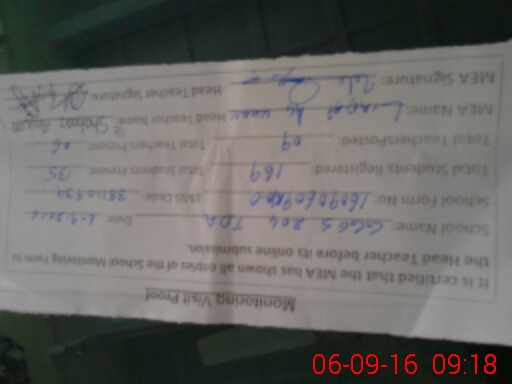 Monitoring Visit Proof
It is certified that the MEA has shown all entries of the School Monitoring Form to
the Head Teacher before its online submission.
School Name: GGES 204 TDA Date: 6-9-2016
School Form No: EMIS Code:
Total Students Registered: 169 Total Students Present: 135
Total TeachersPosted: 09 Total Teachers Present: 06
MEA Name: Head Teacher Name:
MEA Signature: Head Teacher Signature:
06-09-16 09:18